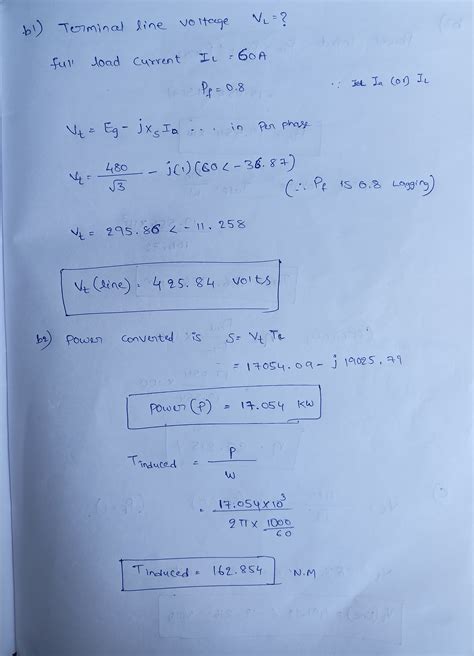 b1) Terminal line voltage VL = ?
full load current IL = 60A
Pf = 0.8 ∵ Ia (or) IL
Vt = Eg - jXs Ia ... in per phase
Vt = 480/√3 - j(1)(60∠-36.87)
(∵ Pf is 0.8 lagging)
Vt = 295.86 ∠ -11.258
Vt (line) = 425.84 volts
b2) power converted is S = Vt Ia
= 17054.09 - j 19025.79
power (P) = 17.054 kW
Tinduced = P/W
= 17.054 x 10³ / 2π x 1000/60
Tinduced = 162.854 N.M